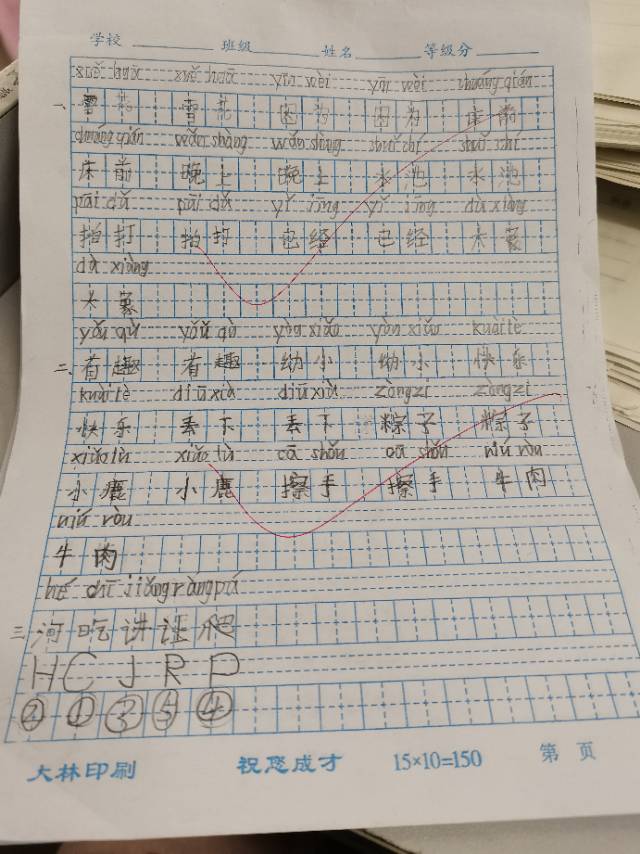 学校 班级 姓名 等级分
xuě huā xuě huā yīn wèi yīn wèi chuáng qián
一、雪花 雪花 因为 因为 床前
chuáng qián wǎn shàng wǎn shàng shuǐ chí shuǐ chí
床前 晚上 晚上 水池 水池
pāi dǎ pāi dǎ yǐ jīng yǐ jīng dà xiàng
拍打 拍打 已经 已经 大象
dà xiàng
大象
yǒu qù yǒu qù yòu xiǎo yòu xiǎo kuài lè
二、有趣 有趣 幼小 幼小 快乐
kuài lè diū xià diū xià zòngzi zòngzi
快乐 丢下 丢下 粽子 粽子
xiǎo lù xiǎo lù cā shǒu cā shǒu niú ròu
小鹿 小鹿 擦手 擦手 牛肉
niú ròu
牛肉
hé chī jiǎng ràng pá
三、河吃讲让爬
H C J R P
② ① ③ ⑤ ④
大林印刷 祝您成才 15×10=150 第 页